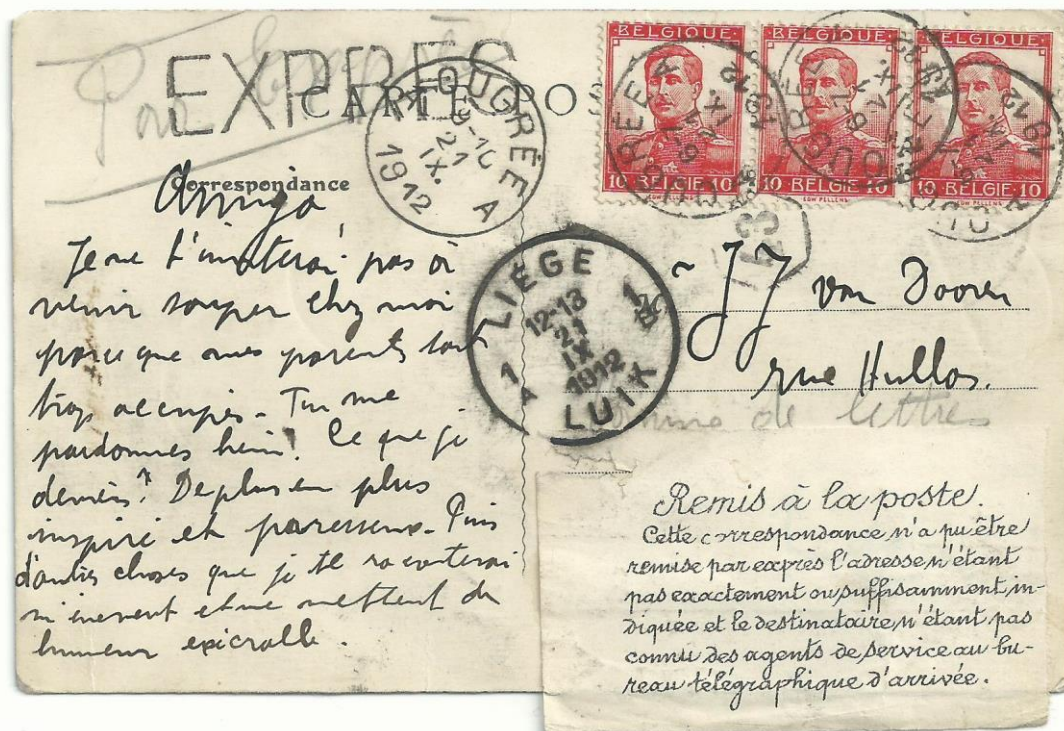 EXPRES
CARTE PO
BELGIQUE
10 BELGIE 10
EDW PELLENS
BELGIQUE
10 BELGIE 10
EDW PELLENS
BELGIQUE
10 BELGIE 10
EDW PELLENS
OUGRÉE A
9-10
21
IX.
1912
Correspondance
Amigo
Je ne t'inviterai pas à
venir souper chez moi
parce que mes parents sont
trop occupés - Tu me
pardonnes hein? Ce que je
deviens? De plus en plus
inspiré et paresseux. Puis
d'autres choses que je te raconterai
m'énervent et me mettent de
humeur
LIÉGE 1
12-13
21
IX
1912
1 A LUIK
J J van Dooren
rue Hullos.
de lettres
Remis à la poste.
Cette correspondance n'a pu être
remise par exprès l'adresse n'étant
pas exactement ou suffisamment in-
diquée et le destinataire n'étant pas
connu des agents de service au bu-
reau télégraphique d'arrivée.